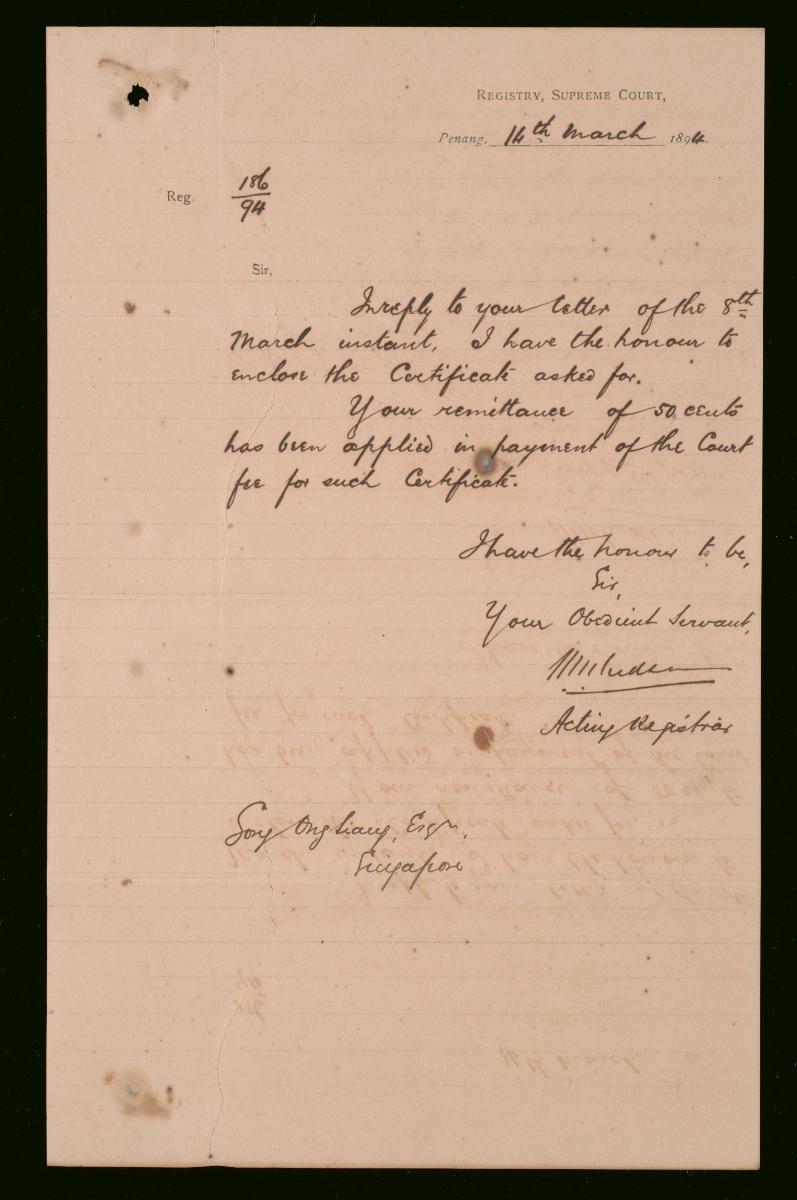 REGISTRY, SUPREME COURT,
Penang, 14th March 1894.
Reg. 186/94
Sir,
In reply to your letter of the 8th
March instant, I have the honour to
enclose the Certificate asked for.
Your remittance of 50 cents
has been applied in payment of the Court
fee for such Certificate.
I have the honour to be,
Sir,
Your Obedient Servant,
Acting Registrar
Song Ong Siang, Esqr,
Singapore